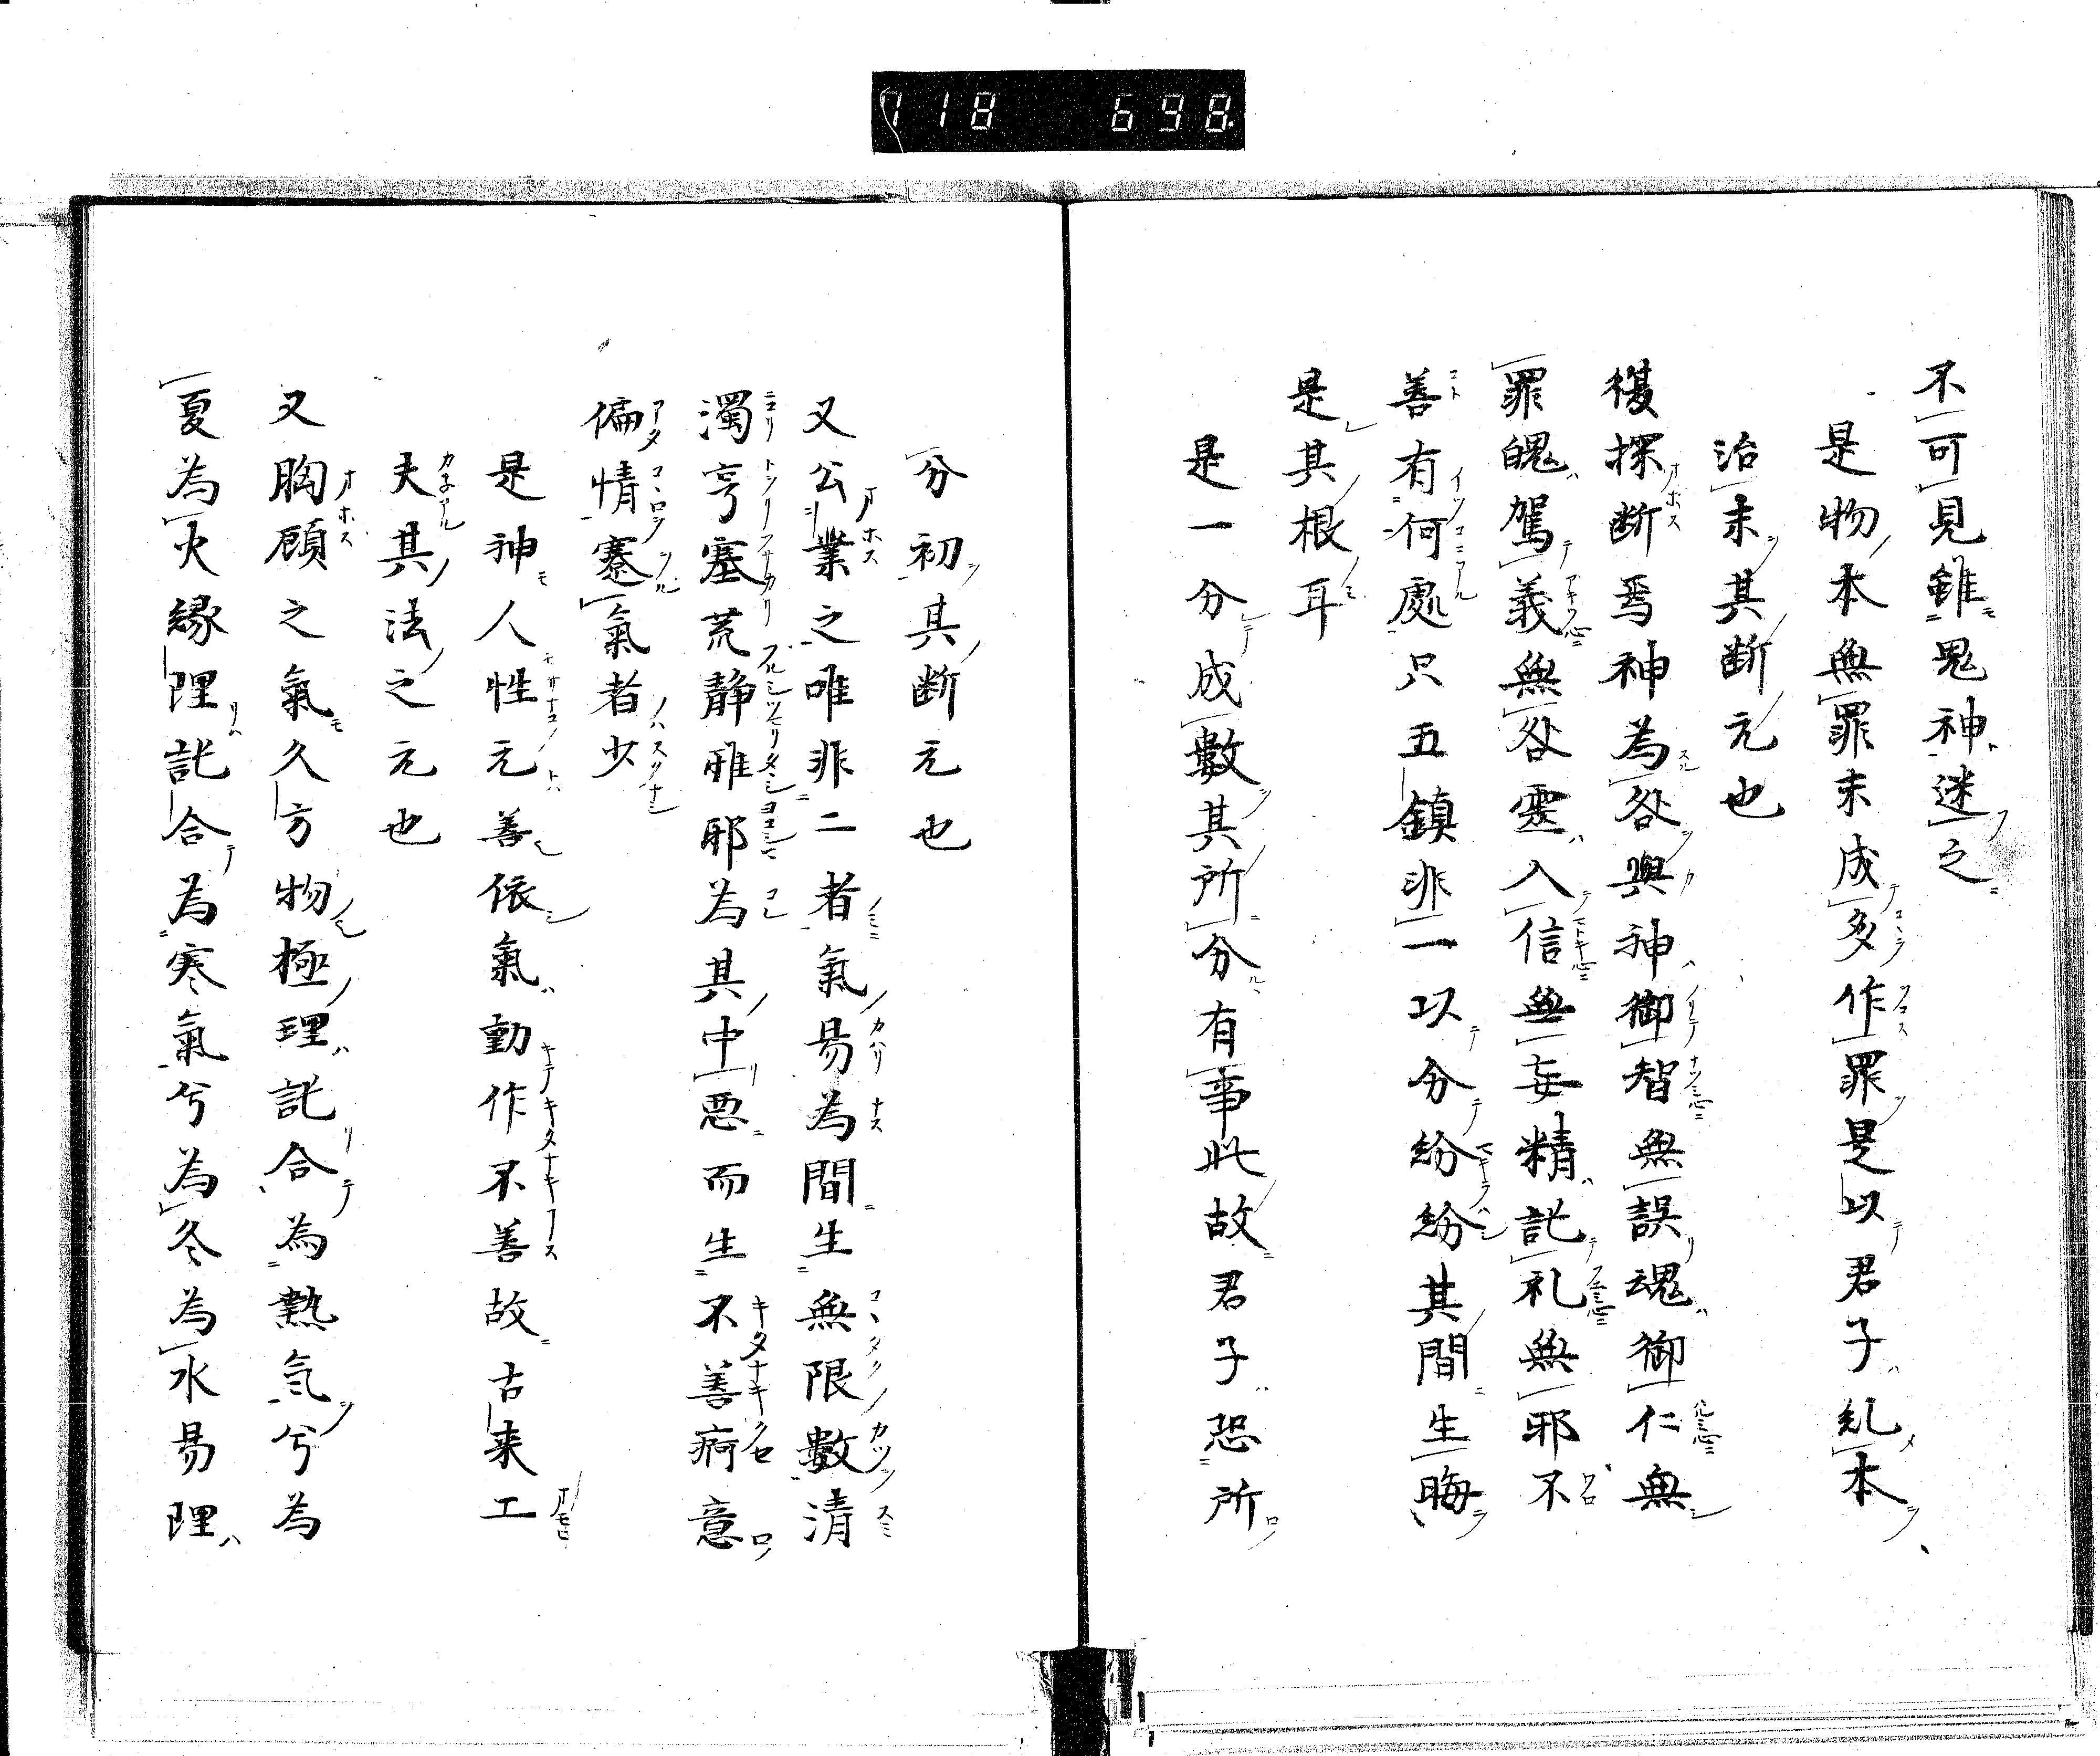 718 698
不可見雖鬼神迷之
是物本無罪末成多作罪是以君子糺本
治末其断元也
複探断焉神為咎與神御智無誤魂御仁無
罪魄駕義無咎霊入信無妄精託礼無邪不
善有何處只五鎮非一以分紛紛其間生晦
是其根耳
是一分成數其所分有事此故君子恐所
分初其断元也
又公業之唯非二者氣易為間生無限數清
濁亨塞荒静雅邪為其中悪而生不善痾意
偏情蹇氣者少
是神人性元善依氣動作不善故古来工
夫其法之元也
又胸顧之氣久方物極理託合為熱気兮為
夏為火縁理託合為寒氣兮為冬為水易理